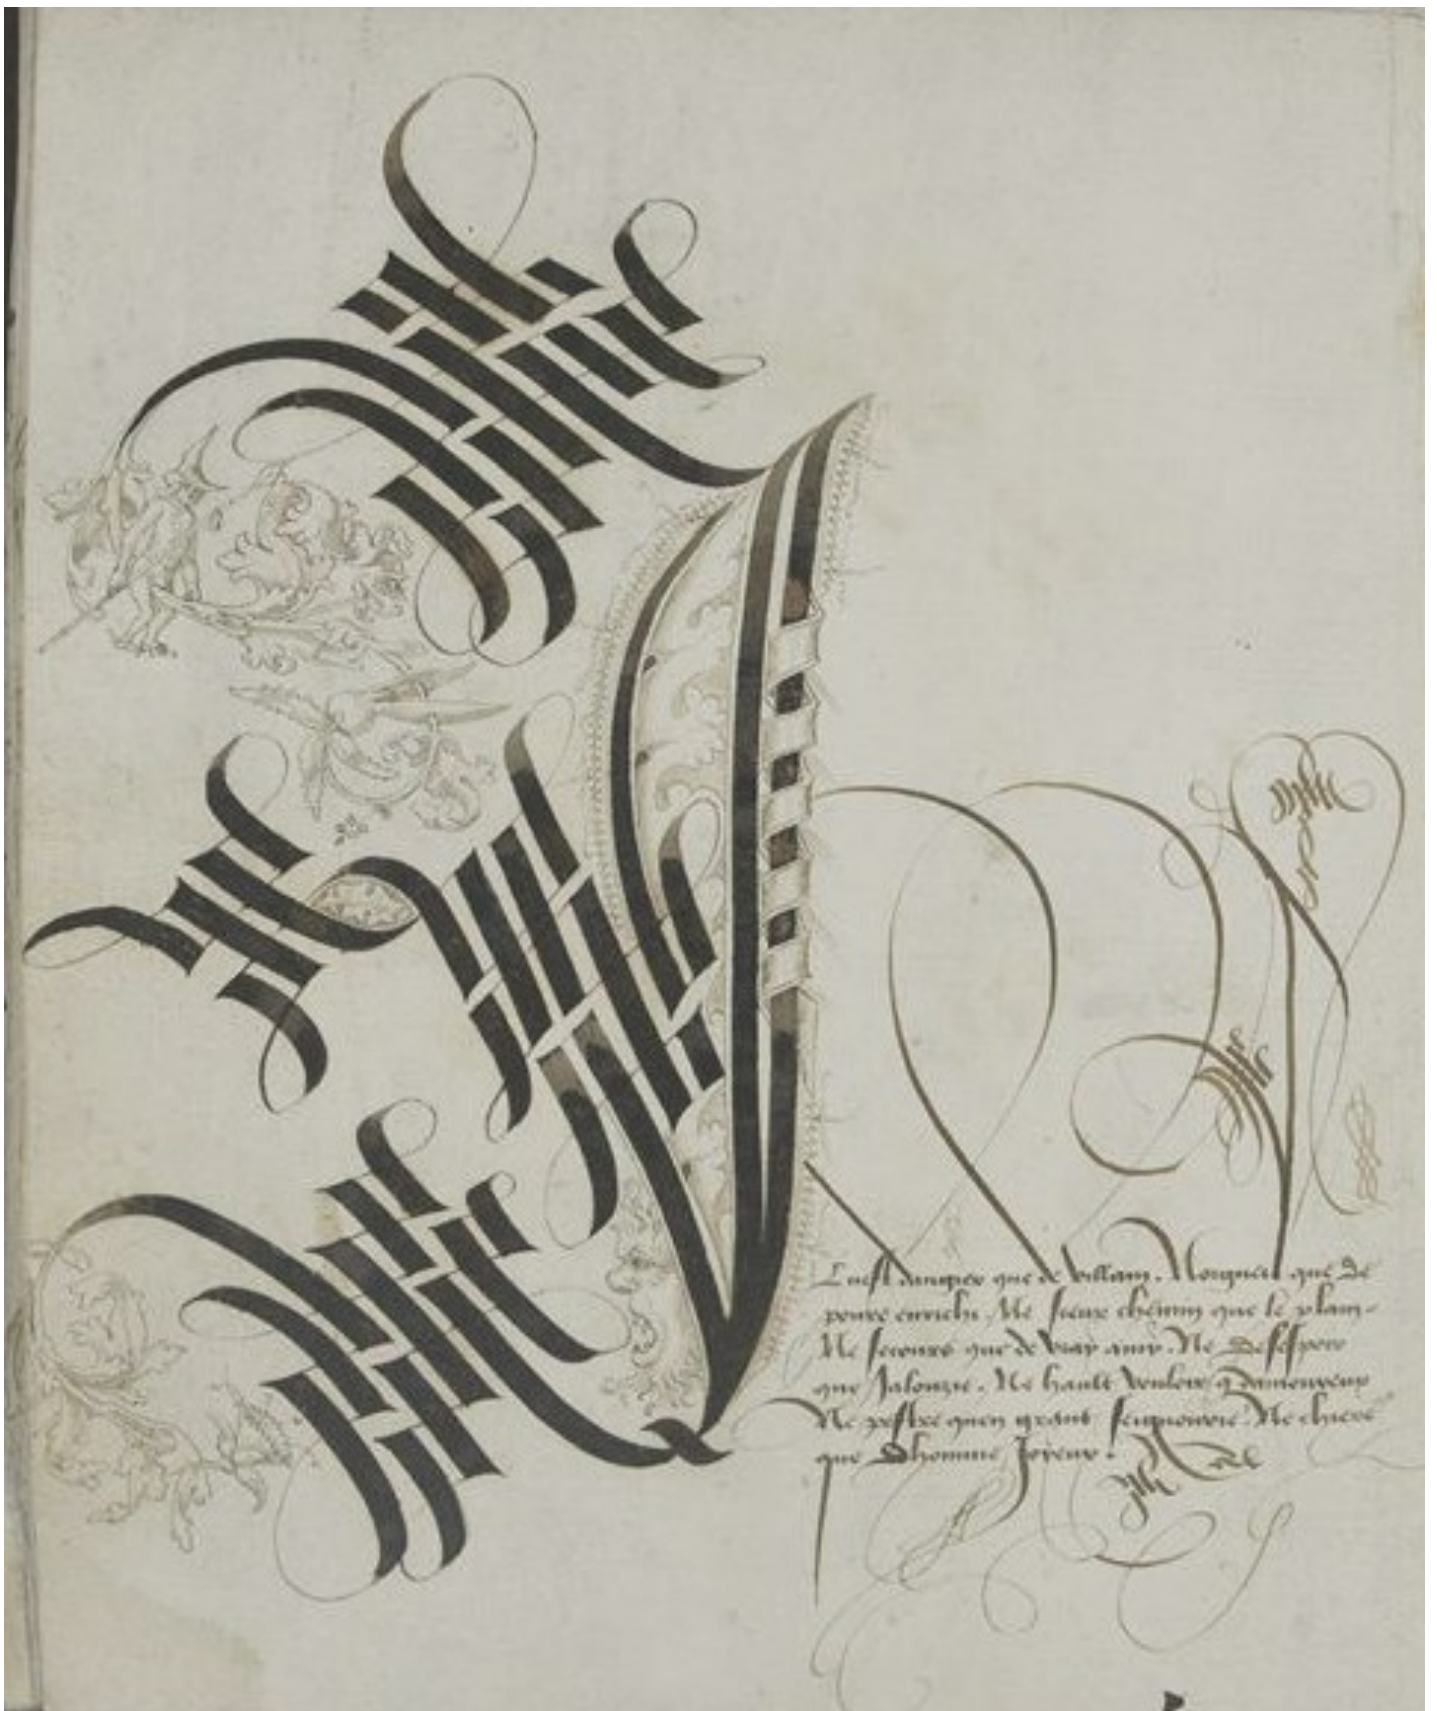 IL nest dangier que de villain. Norgueil que de
poure enrichi. Ne seeur chemin que le plain.
Ne secours que de vray amy. Ne desespoir
que Jalouzie. Ne hault vouloir q damoureux
Ne pestre quen grant seignourie. Ne chiere
que dhomme Joyeux.